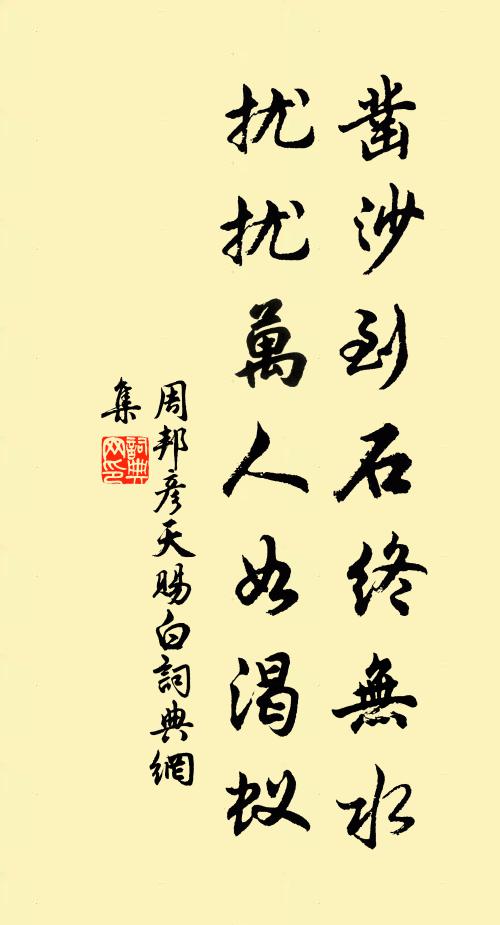 凿沙到石终無水
扰扰萬人如渴蚁
周邦彦天賜白詞典網
集
詞典
网印